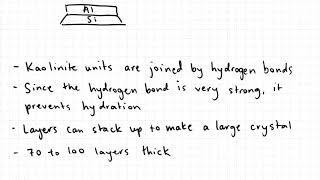 Al
Si
- Kaolinite units are joined by hydrogen bonds
- Since the hydrogen bond is very strong, it
prevents hydration
- Layers can stack up to make a large crystal
- 70 to 100 layers thick